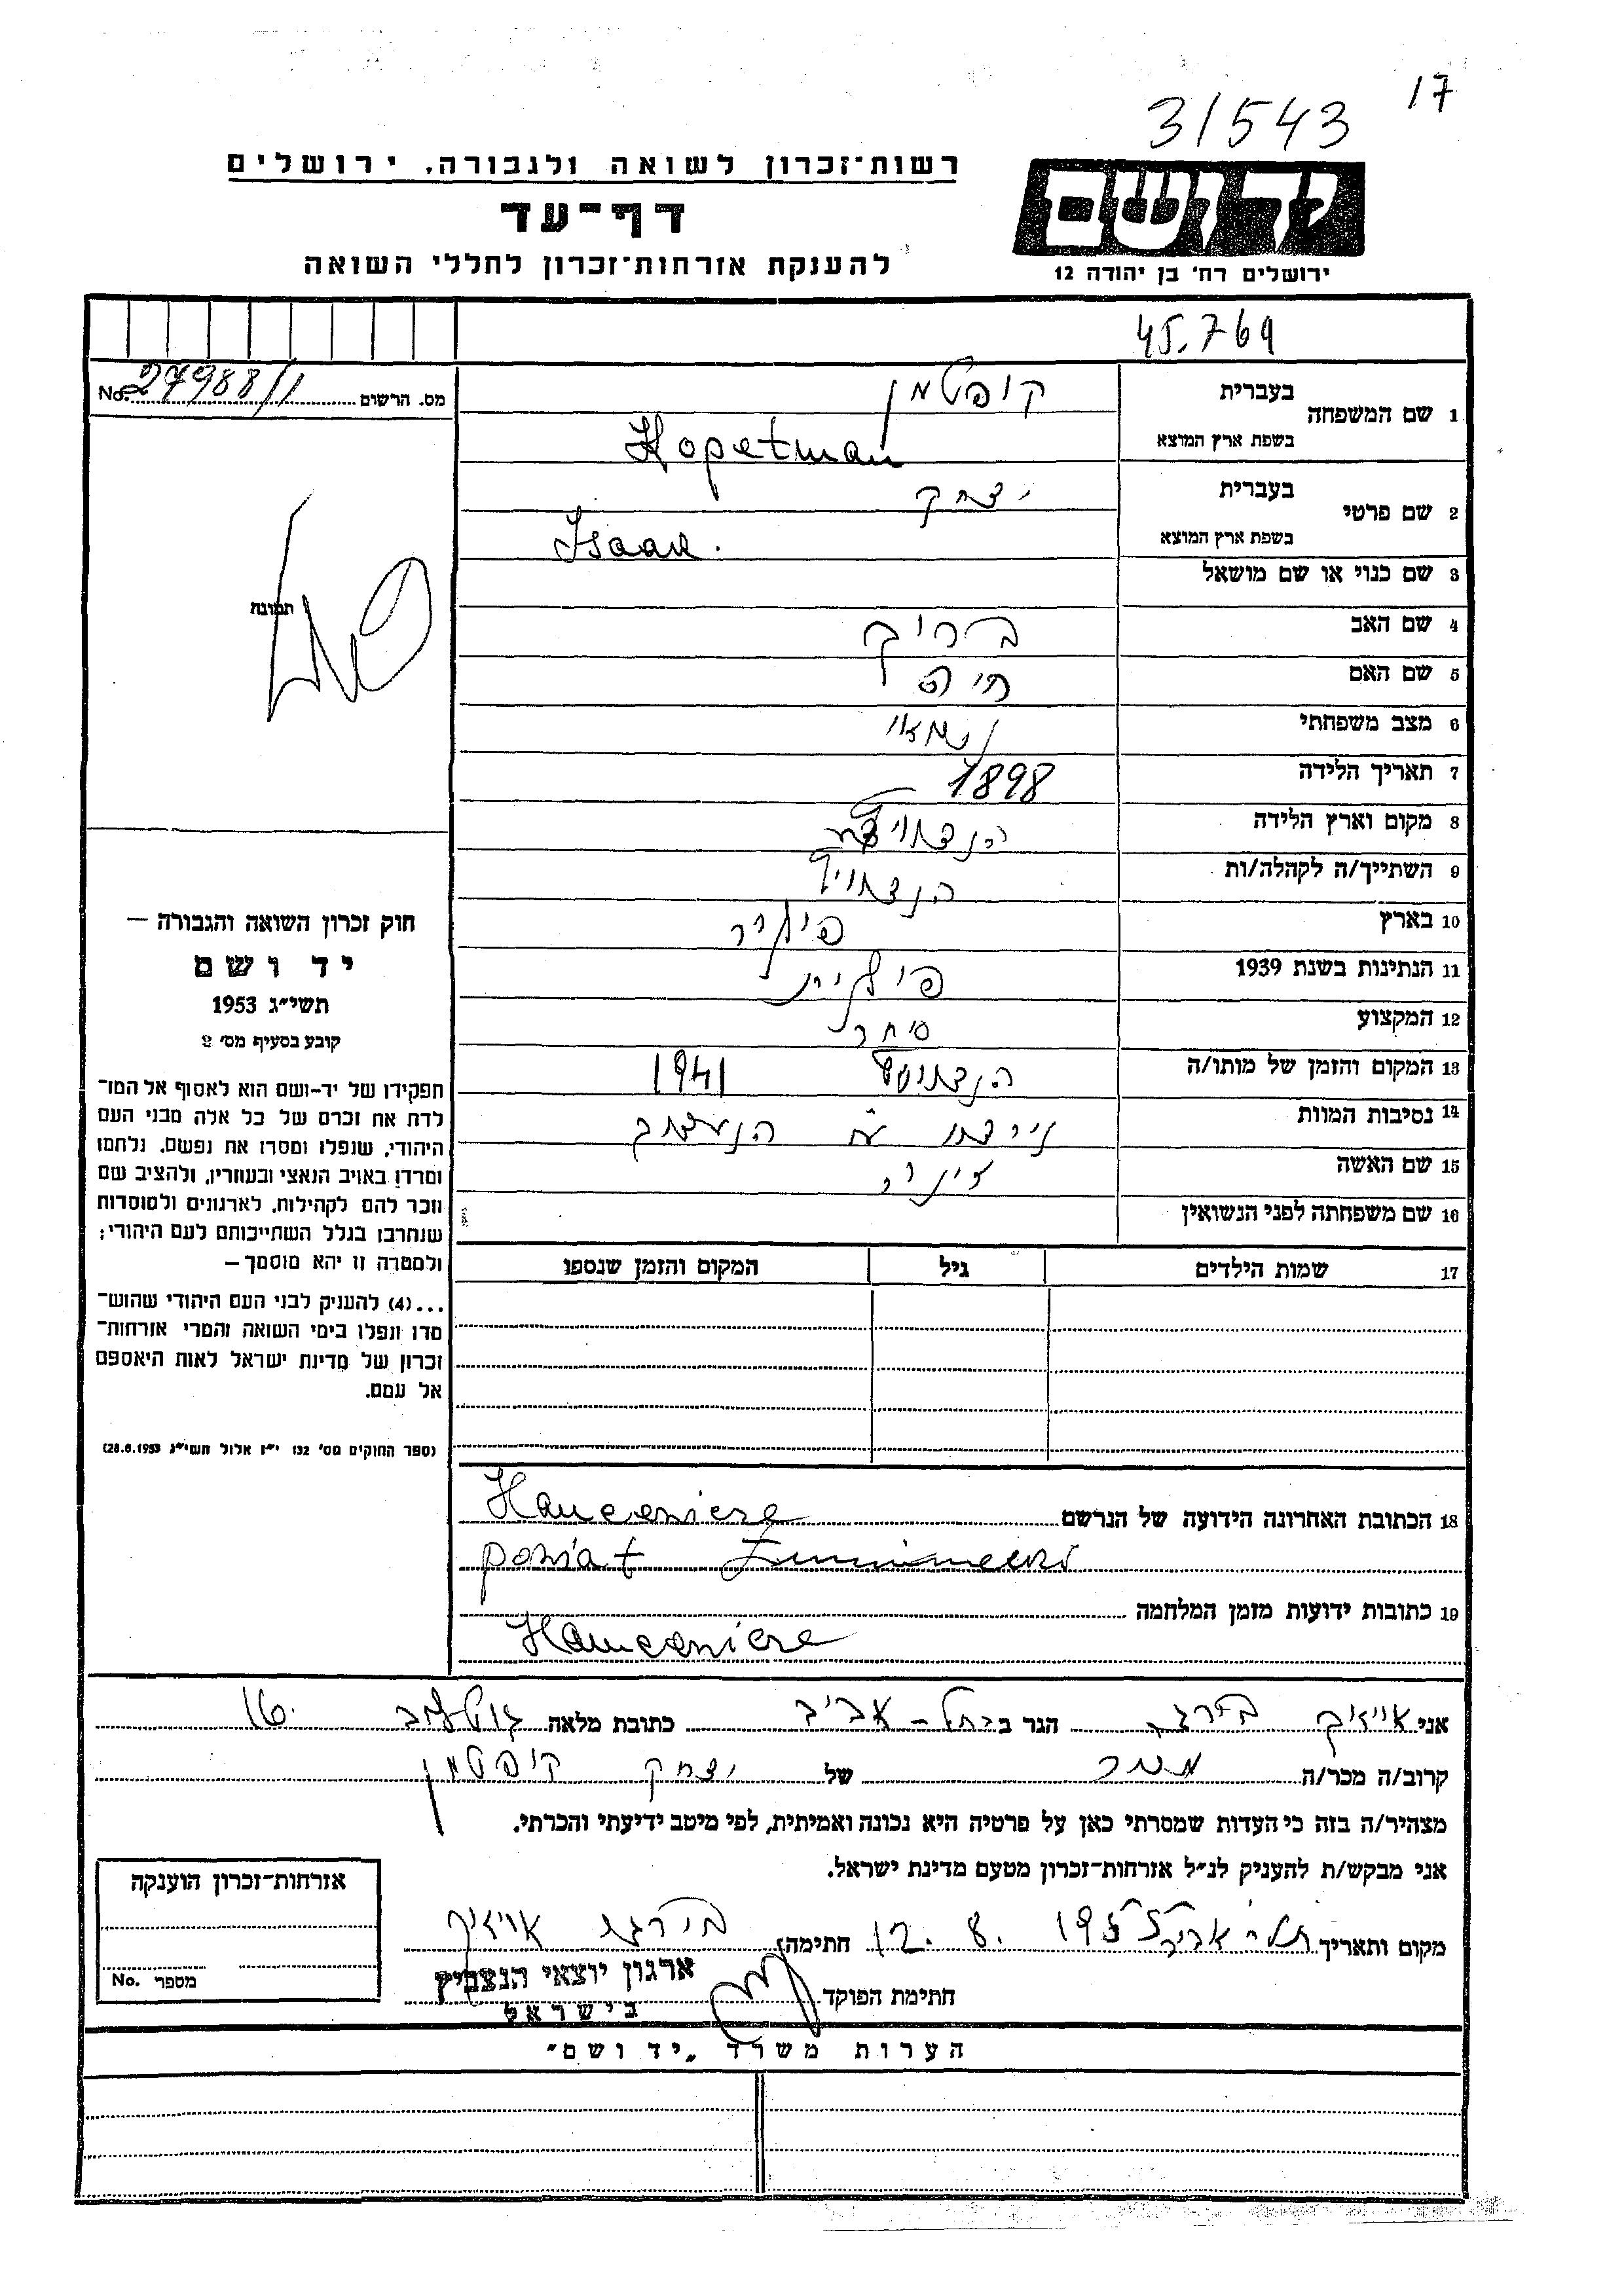 17
31543
יד ושם
ירושלים רח׳ בן יהודה 12
רשות־זכרון לשואה ולגבורה, ירושלים
דף־עד
להענקת אזרחות־זכרון לחללי השואה
45.769
מס. הרשום 27988/1 No.
תמונה
1 שם המשפחה בעברית קופטמן
בשפת ארץ המוצא Kopetman
2 שם פרטי בעברית יצחק
בשפת ארץ המוצא Isaak.
3 שם כנוי או שם מושאל
4 שם האב ברוך
5 שם האם חיה
6 מצב משפחתי נשאוי
7 תאריך הלידה 1898
8 מקום וארץ הלידה
9 השתייך/ה לקהלה/ות
10 בארץ פולין
11 הנתינות בשנת 1939 פולנית
12 המקצוע סוחר
13 המקום והזמן של מותו/ה 1941
14 נסיבות המוות
15 שם האשה
16 שם משפחתה לפני הנשואין
17 שמות הילדים גיל המקום והזמן שנספו
חוק זכרון השואה והגבורה —
יד ושם
תשי״ג 1953
קובע בסעיף מס׳ 2
תפקידו של יד-ושם הוא לאסוף אל המו־
לדת את זכרם של כל אלה מבני העם
היהודי, שנפלו ומסרו את נפשם, נלחמו
ומרדו באויב הנאצי ובעוזריו, ולהציב שם
וזכר להם לקהילות, לארגונים ולמוסדות
שנחרבו בגלל השתייכותם לעם היהודי;
ולמטרה זו יהא מוסמך —
...(4) להעניק לבני העם היהודי שהוש־
מדו ונפלו בימי השואה והמרי אזרחות־
זכרון של מדינת ישראל לאות היאספם
אל עמם.
(ספר החוקים מס׳ 132 י״ז אלול תשי״ג 28.8.1953)
18 הכתובת האחרונה הידועה של הנרשם
powiat
19 כתובות ידועות מזמן המלחמה
אני אייזיק הגר בתל-אביב כתובת מלאה 16
קרוב/ה מכר/ה מכר של יצחק קופטמן
מצהיר/ה בזה כי העדות שמסרתי כאן על פרטיה היא נכונה ואמיתית, לפי מיטב ידיעתי והכרתי.
אני מבקש/ת להעניק לנ״ל אזרחות-זכרון מטעם מדינת ישראל.
מקום ותאריך תל-אביב 12.8.1955 חתימה אייזיק
חתימת הפוקד
ארגון יוצאי הנצביץ
בישראל
אזרחות-זכרון הוענקה
מספר No.
הערות משרד „יד ושם״